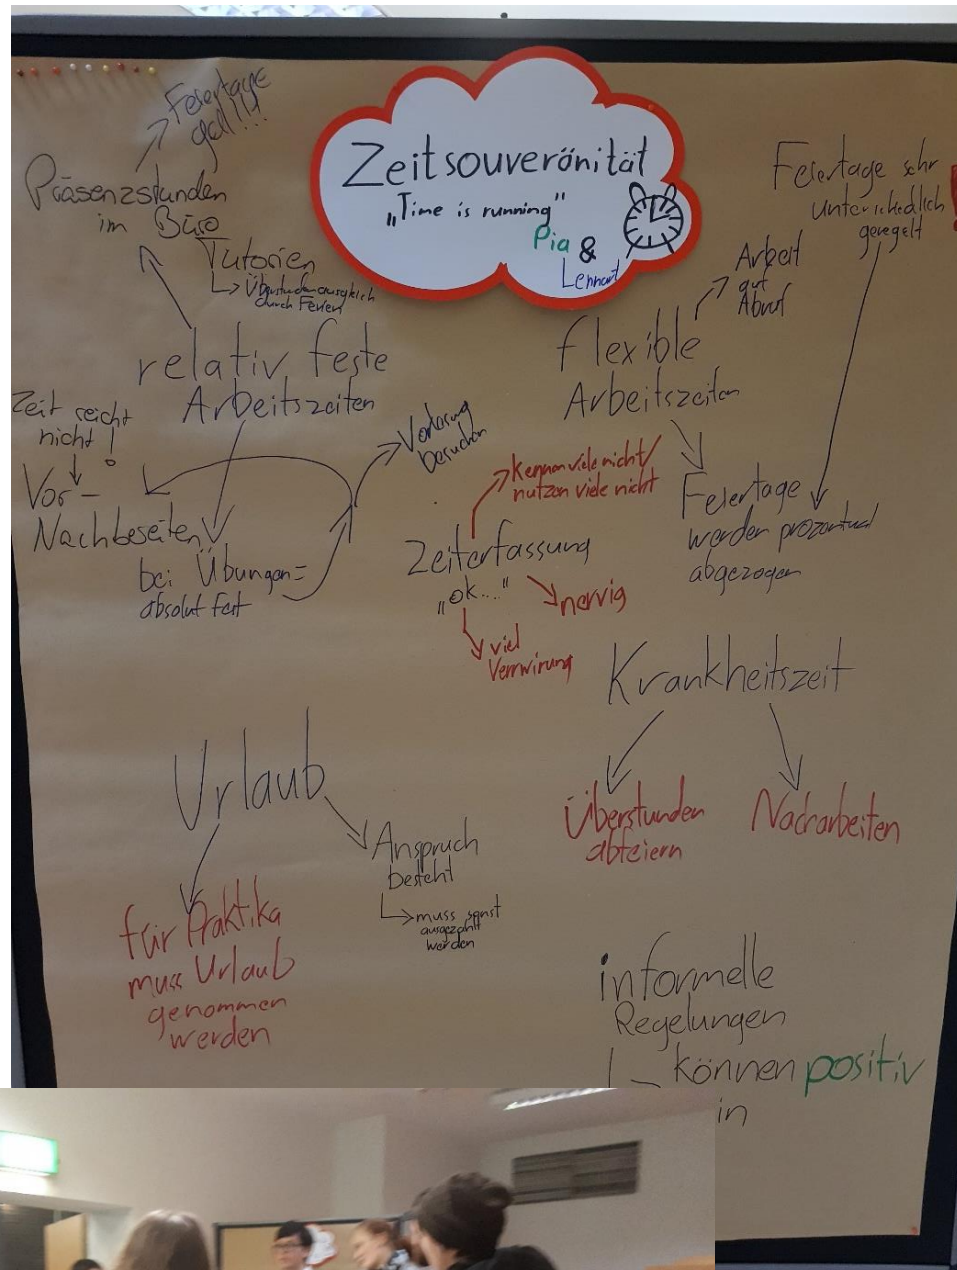 Zeitsouveränität
„Time is running"
Pia &
Lennart
Feiertage
egal!!!
Präsenzstunden
im Büro
Tutorien
Überstundenausgleich
durch Ferien
relativ feste
Arbeitszeiten
Zeit reicht
nicht!
Vor-
Nachbereiten
bei Übungen=
absolut fest
Vorlesung
besuchen
Feiertage sehr
unterschiedlich
geregelt
!
Arbeit
auf
Abruf
flexible
Arbeitszeiten
Feiertage
werden prozentual
abgezogen
kennen viele nicht/
nutzen viele nicht
Zeiterfassung
„ok..."
nervig
viel
Verwirrung
Krankheitszeit
Überstunden
abfeiern
Nacharbeiten
Urlaub
Anspruch
besteht
muss sonst
ausgezahlt
werden
für Praktika
muss Urlaub
genommen
werden
informelle
Regelungen
können positiv
in